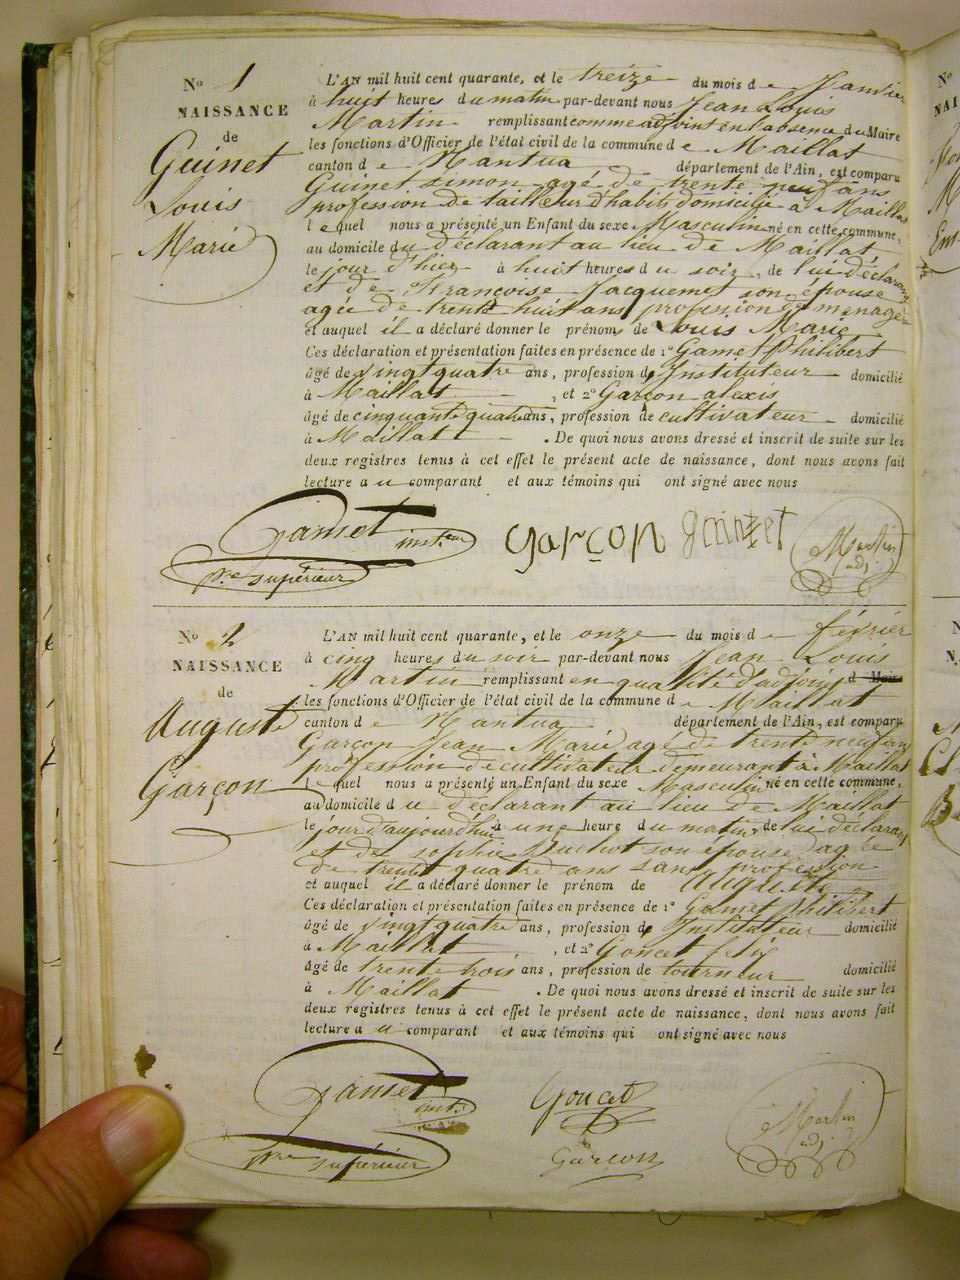 No 1
NAISSANCE
de
Guinet
Louis
Marie
L'AN mil huit cent quarante, et le treize du mois de Janvier
à huit heures du matin par-devant nous Jean Louis
Martin remplissant comme adjoint en l'absence du Maire
les fonctions d'Officier de l'état civil de la commune de Maillat
canton de Nantua département de l'Ain, est comparu
Guinet Simon agé de trente neuf ans
profession de tailleur d'habits domicilié à Maillat
lequel nous a présenté un Enfant du sexe Masculin né en cette commune,
au domicile du déclarant au lieu de Maillat
le jour d'hier à huit heures du soir, de lui déclarant
et de Françoise Jacquemet son épouse
agée de trente huit ans profession de menagère
et auquel il a déclaré donner le prénoms de Louis Marie
Ces déclaration et présentation faites en présence de 1o Gamet Philibert
âgé de vingt quatre ans, profession de Instituteur domicilié
à Maillat, et 2o Garçon alexis
âgé de cinquante quatre ans, profession de cultivateur domicilié
à Maillat. De quoi nous avons dressé et inscrit de suite sur les
deux registres tenus à cet effet le présent acte de naissance, dont nous avons fait
lecture au comparant et aux témoins qui ont signé avec nous
Gamet garçon Martin
insteur adj.
pre supérieur
No 2
NAISSANCE
de
Auguste
Garçon
L'AN mil huit cent quarante, et le onze du mois de février
à cinq heures du soir par-devant nous Jean Louis
Martin remplissant en qualité d'adjoint d Maire
les fonctions d'Officier de l'état civil de la commune de Maillat
canton de Nantua département de l'Ain, est comparu
Garçon Jean Marie agé de trente neuf ans
profession de cultivateur demeurant à Maillat
lequel nous a présenté un Enfant du sexe Masculin né en cette commune,
au domicile du déclarant au lieu de Maillat
le jour d'aujourd'hui à une heure du matin de lui déclarant
et de sophie son épouse agée
de trente quatre ans sans profession
et auquel il a déclaré donner le prénom de Auguste
Ces déclaration et présentation faites en présence de 1o Gamet Philibert
âgé de vingt quatre ans, profession de Instituteur domicilié
à Maillat, et 2o Goncet félix
âgé de trente trois ans, profession de tourneur domicilié
à Maillat. De quoi nous avons dressé et inscrit de suite sur les
deux registres tenus à cet effet le présent acte de naissance, dont nous avons fait
lecture au comparant et aux témoins qui ont signé avec nous
Gamet Goncet Martin
inst. adj.
pre supérieur Garcon